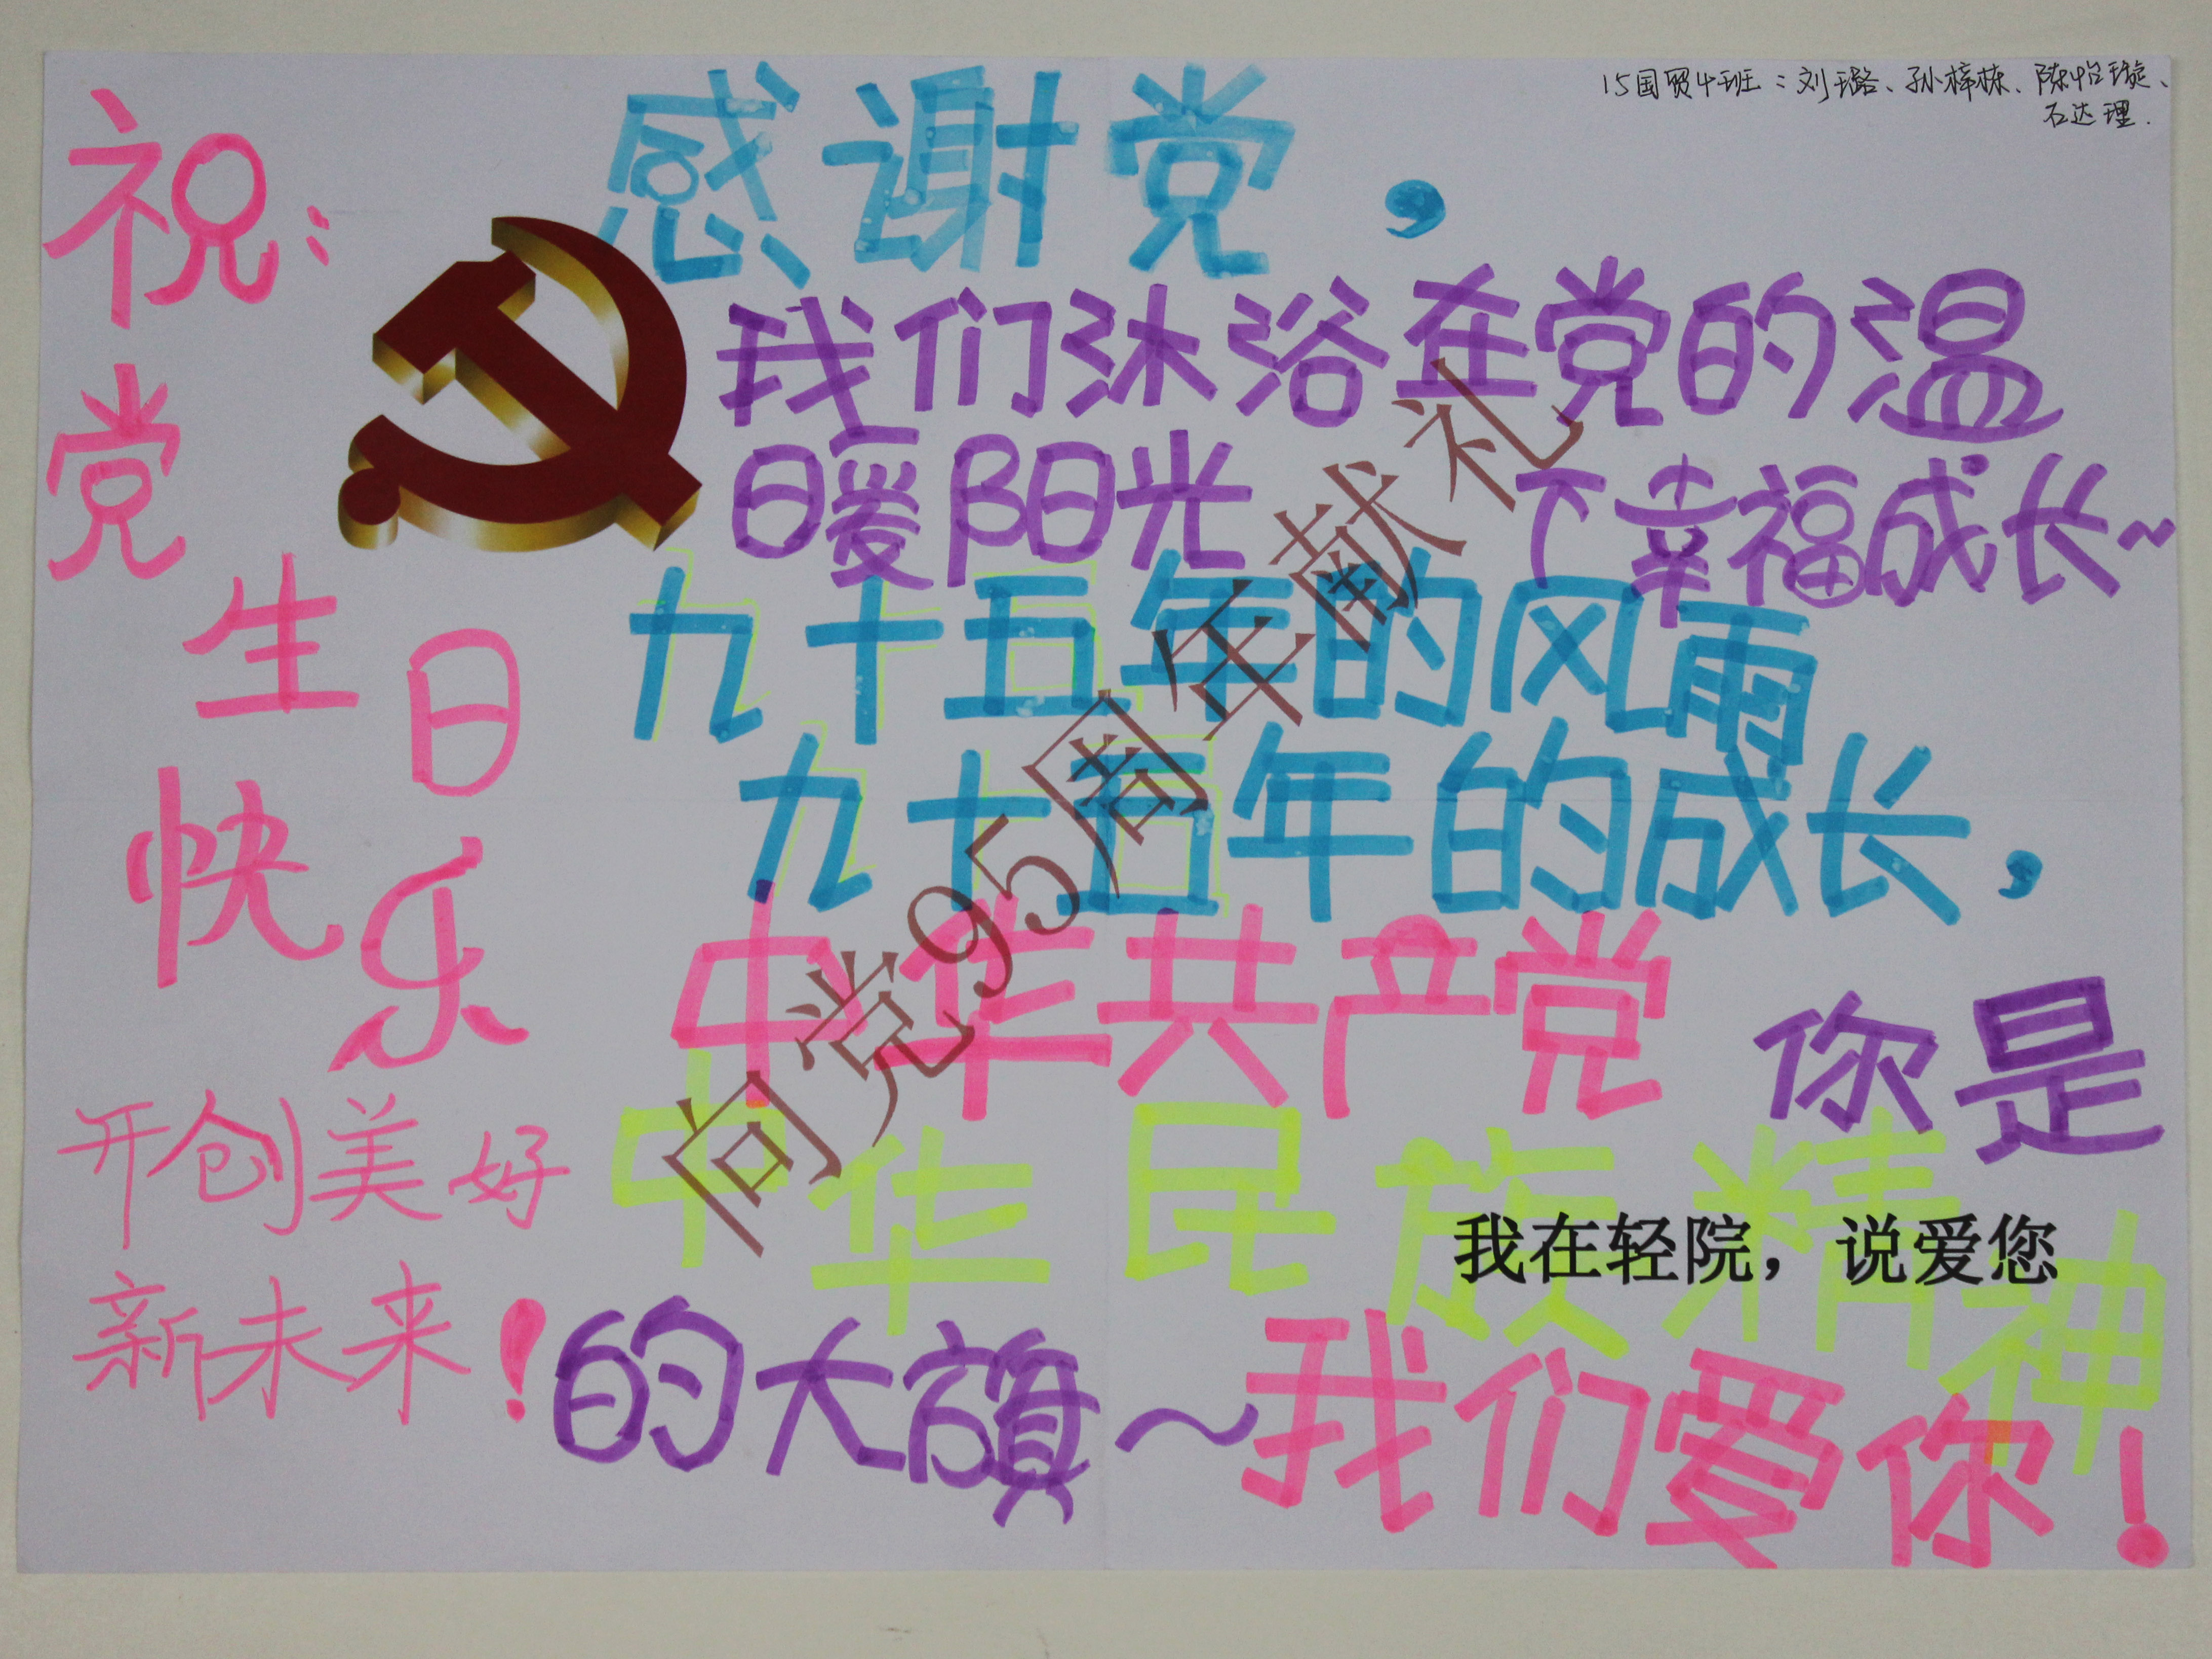 15国贸4班：刘璐、孙梓栋、陈怡璇、
石达理.
祝：
党
生日
快乐
开创美好
新未来！
感谢党，
我们沐浴在党的温
暖阳光下幸福成长~
九十五年的风雨
九十五年的成长，
中华共产党 你是
中华民族精神
的大旗~我们爱你！
向党95周年献礼
我在轻院，说爱您